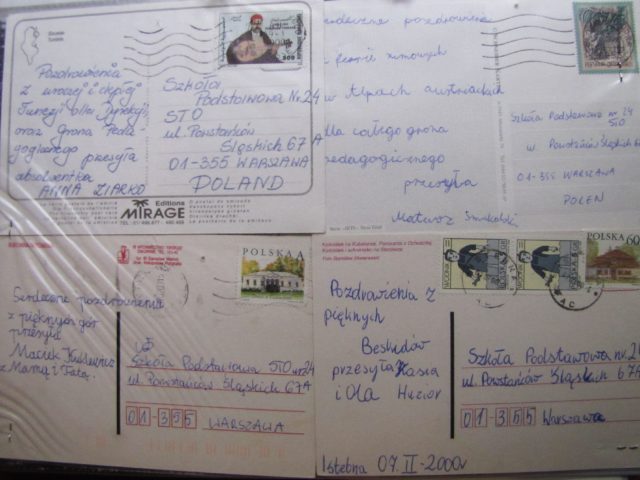 Pozdrowienia
z uroczej i ciepłej
Tunezji dla Dyrekcji,
oraz Grona Peda-
gogicznego przesyła
absolwentka
ANNA ZIARKO
500
Szkoła
Podstawowa Nr. 24
STO
ul. Powstańców
Śląskich 67 A
01-355 WARSZAWA
POLAND
Editions
MIRAGE
serdeczne pozdrowienia
z ferii zimowych
w Alpach austriackich
dla całego grona
pedagogicznego
przesyła
Mateusz
Szkoła Podstawowa nr 24
STO
ul. Powstańców Śląskich 6
01-355 WARSZAWA
POLEN
Serdeczne pozdrowienia
z pięknych gór
przesyła
Maciek
z Mamą i Tatą.
POLSKA A
Szkoła Podstawowa STO nr 24
ul. Powstańców Śląskich 67A
01-355 WARSZAWA
Pozdrowienia z
pięknych
Beskidów
przesyła Kasia
i Ola Huzior
Istebna 07. II - 2000r
POLSKA 60
Szkoła Podstawowa nr 24
ul. Powstańców Śląskich 67A
01-355 Warszawa